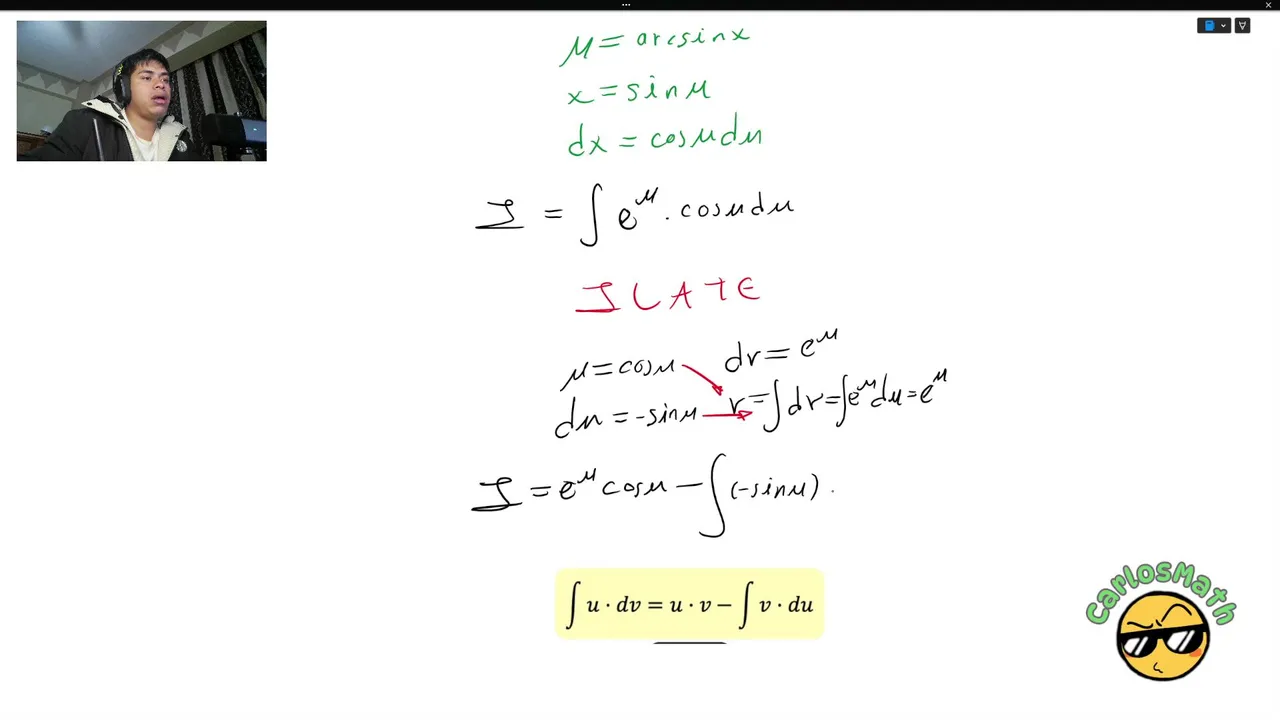 μ = arcsinx
x = sinμ
dx = cosμdμ
I = ∫ e^μ . cosμdμ
I L A T E
μ = cosμ dv = e^μ
du = -sinμ v = ∫dv = ∫e^μ du = e^μ
I = e^μ cosμ - ∫(-sinμ) .
∫ u · dv = u · v − ∫ v · du
CarlosMath